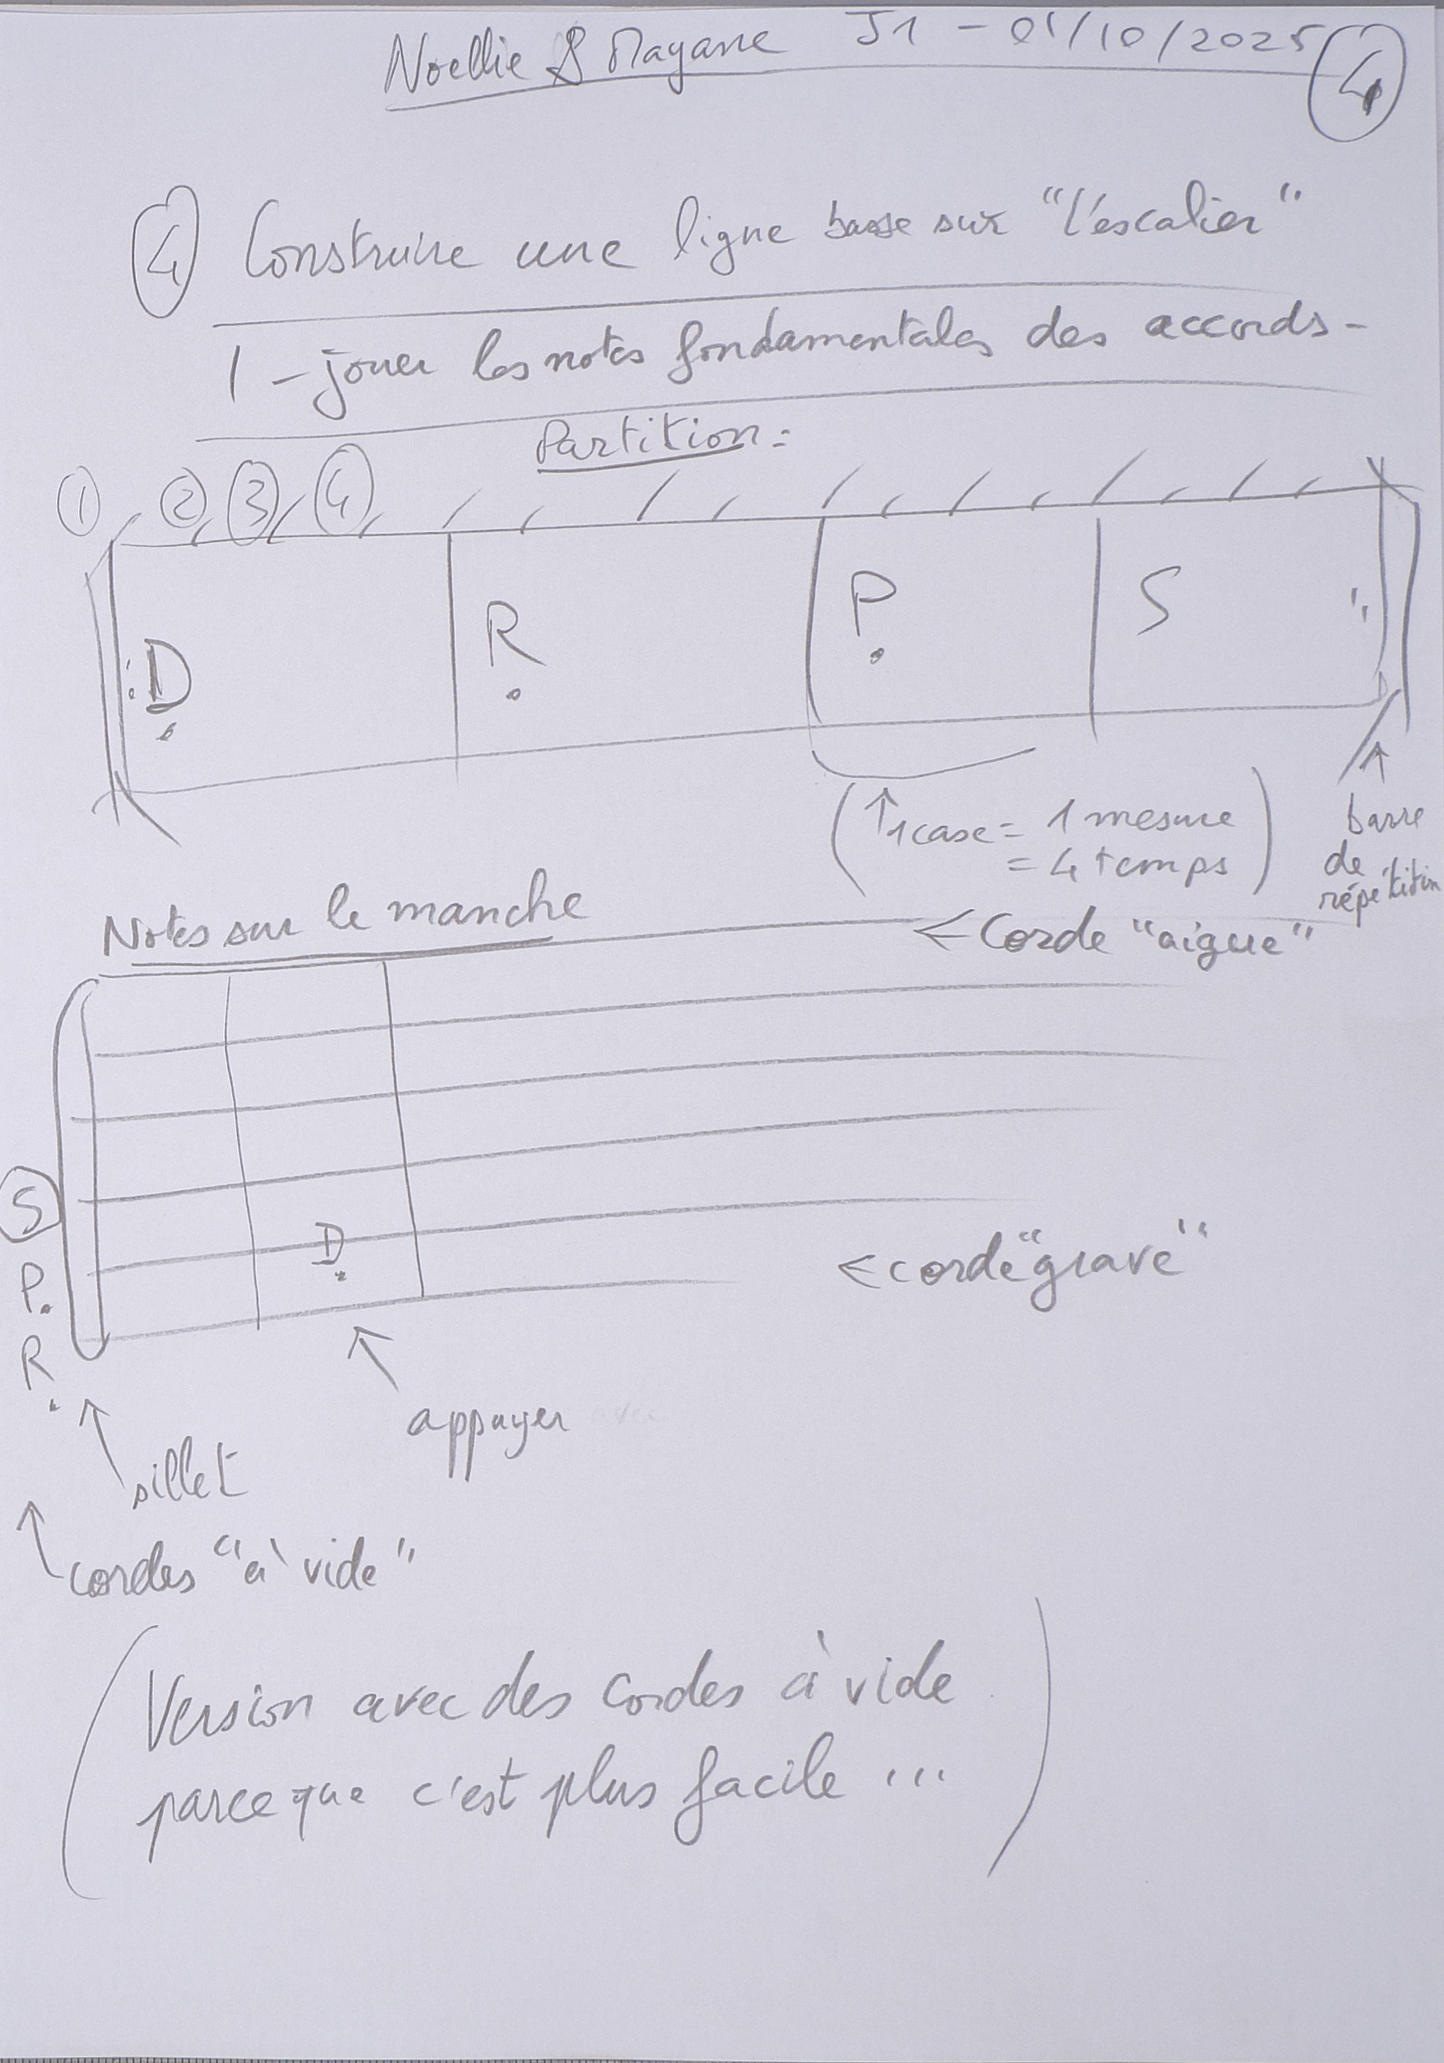 Noellie & Mayane J1 - 01/10/2025 4
4 Construire une ligne basse sur "l'escalier"
1 - jouer les notes fondamentales des accords -
Partition :
1 2 3 4
D R. P. S
↑ 1 case = 1 mesure
= 4 temps
↑
barre
de
répétition
Notes sur le manche
← Corde "aigue"
S
P.
R.
D
← corde "grave"
appuyer
sillet
cordes "à vide"
(Version avec des cordes à vide
parce que c'est plus facile ...)